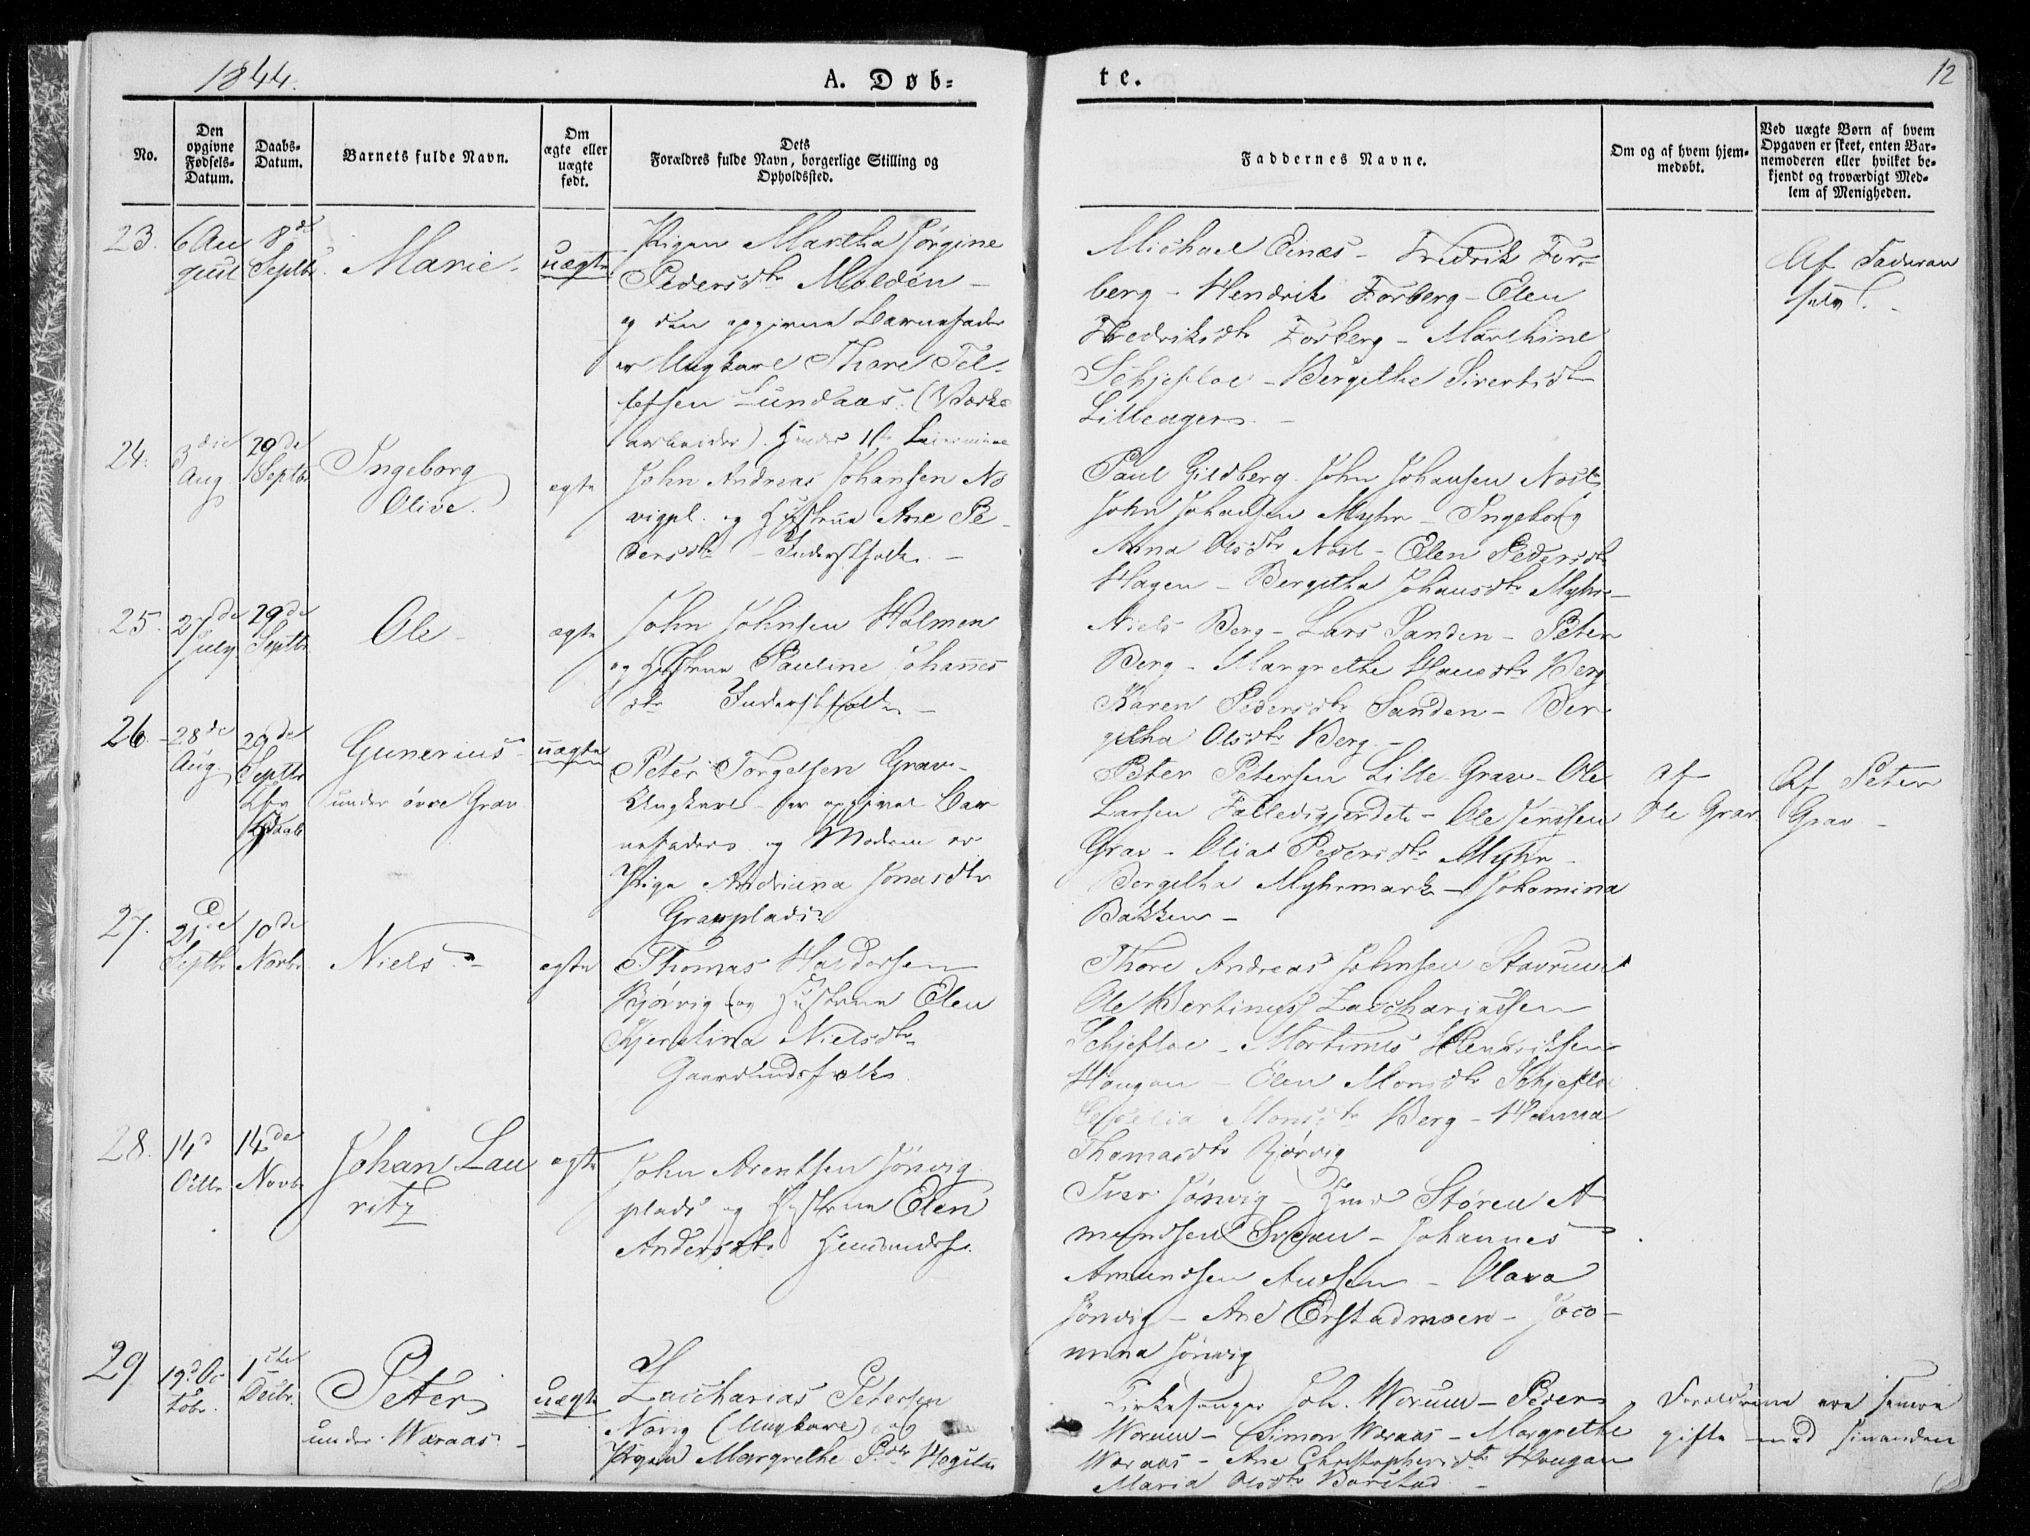 1844.
A. Døb=
te.
12
No.
Den opgivne Fødsels-Datum.
Daabs-Datum.
Barnets fulde Navn.
Om ægte eller uægte født.
Dets
Forældres fulde Navn, borgerlige Stilling og
Opholdssted.
Faddernes Navne.
Om og af hvem hjem-
medøbt.
Ved uægte Børn af hvem
Opgaven er skeet, enten Bar-
nemoderen eller hvilket be-
kjendt og troværdigt Med-
lem af Menigheden.
23.
6 Au
gust
8de
Septbr.
Marie
uægte
Pigen Martha Jørgine
Pedersdtr Molden
og den opgivne Barnefader
er Ungkarl Thore Tel-
lefsen Lundaas. (Værks
arbeider).
Michael Einæs - Fredrik For-
berg - Hendrik Forberg - Elen
Fredriksdtr Forberg - Marthine
Schjefloe - Bergithe Sivertsdtr
Lilleager
Af Faderen
selv.
24.
3die
Aug
29de
Septbr
Ingeborg
Olive.
ægte
John Andreas Johansen No
vigpl. og Hustrue Ane Pe-
dersdtr - Inderstfolk
Paul Gildberg. John Johansen Nøst
John Johansen Myhr - Ingeborg
Anna Olsdtr Nøst - Elen Pedersdtr
Hagen - Bergitha Johansdtr Myhr
25.
27de
July
29de
Septbr
Ole
ægte
John Johnsen Holmen
og Hustrue Pauline Johannes
dtr Inderstfolk
Niels Berg - Lars Sanden - Peter
Berg - Margrethe Hansdtr Berg
Karen Pedersdtr Sanden - Ber
githa Olsdtr Berg
26.
28de
Aug.
29de
Septbr
Gunerius
under øvre Grav
uægte
Peter Torgersen Grav
Ungkarl - er opgivet Bar
nefader og Moderen er
Pige Andriana Jonasdtr
Gravplads
Peter Petersen Lille Grav - Ole
Larsen Falledsgjerdet - Ole Jenssen
Grav - Olia Pedersdtr Myhr
Bergitha Myhrmark - Johamina
Bakken
af
Ole Grav
Af Peter
Grav
27.
21de
Septbr
10de
Novbr.
Niels
ægte
Thomas Haldorsen
Bjørvig og Hustrue Elen
Kjerstina Nielsdtr
Gaardmandsfolk
Thore Andreas Johnsen Stavrum
Ole Bertinus Zacchariassen
Schjefloe - Mortinus Henriksen
Haugan - Elen Monsdtr Schjefloe
Monsdtr Berg - Hanna
Thomasdtr Bjørvig
28.
14d
Octbr
14de
Novbr
Johan Lau
ritz
ægte
John Arentsen Jørvig
plads og Hustrue Elen
Andersdtr Huusmandsf.
Iver Jørvig - Støren A
mundsen Svean - Johannes
Amundsen - Olava
Jørvig - Ane Erstadmoen - Jaco-
mina Jørvig
29
19d Oc
tobr.
1ste
Decbr.
Peter
under Wæraas
uægte
Zaccharias Petersen
Norig (Ungkarl) og
Pigen Margrethe P.dtr
Kirkesanger Joh. Worum - Peder
Worum - Simon Wæraas - Margrethe
Wæraas - Ane Christophersdtr Haugan
Maria Olsdtr Borstad
Forældrene ere senere
gifte med hinanden